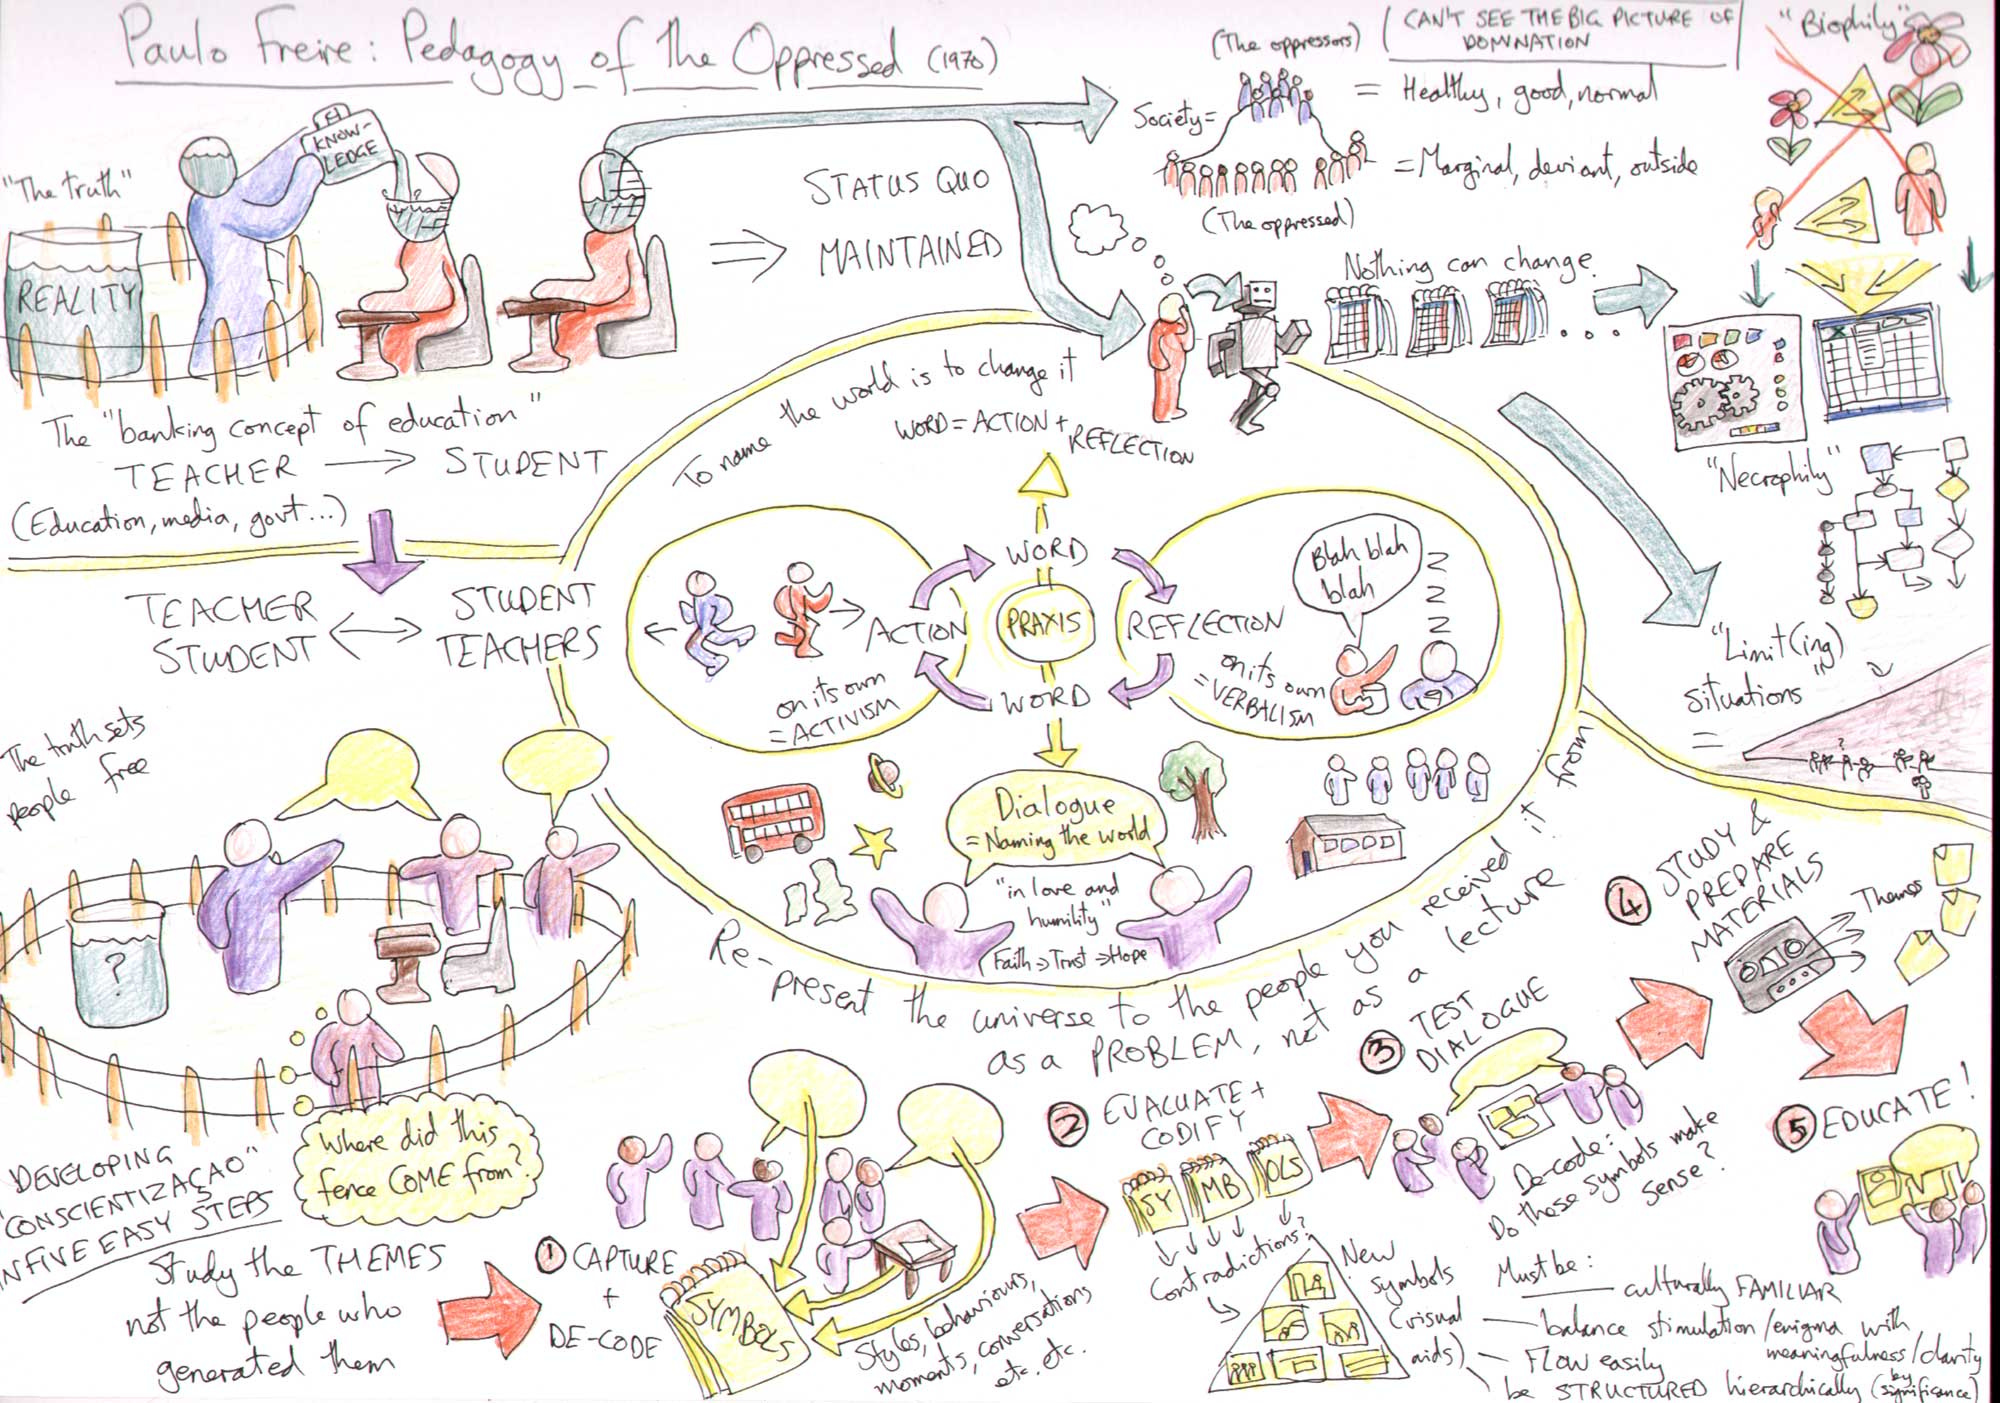 Paulo Freire: Pedagogy of the Oppressed (1970)
"The truth"
KNOW-
LEDGE
REALITY
STATUS QUO
MAINTAINED
The "banking concept of education"
TEACHER → STUDENT
(Education, media, govt...)
(The oppressors)
CAN'T SEE THE BIG PICTURE OF
DOMINATION
Society =
= Healthy, good, normal
= Marginal, deviant, outside
(The oppressed)
Nothing can change
"Biophily"
"Necrophily"
"Limit(ing)
situations"
=
?
TEACHER
STUDENT
STUDENT
TEACHERS
The truth sets
people free
?
Where did this
fence COME from?
To name the world is to change it
WORD = ACTION +
REFLECTION
WORD
PRAXIS
WORD
ACTION
on its own
= ACTIVISM
REFLECTION
on its own
= VERBALISM
Blah blah
blah
Z
Z
Z
Z
Dialogue
= Naming the world
"in love and
humility"
Faith → Trust → Hope
Re-present the universe to the people you received it from
as a PROBLEM, not as a lecture
DEVELOPING
"CONSCIENTIZAÇAO"
IN FIVE EASY STEPS
Study the THEMES
not the people who
generated them
1 CAPTURE
+
DE-CODE
SYMBOLS
Styles, behaviours,
moments, conversations
etc. etc.
2 EVALUATE +
CODIFY
SY
MB
OLS
Contradictions?
New
symbols
(visual
aids)
3 TEST
DIALOGUE
De-code:
Do these symbols make
sense?
4 STUDY &
PREPARE
MATERIALS
Themes
5 EDUCATE!
Must be:
culturally FAMILIAR
balance stimulation/enigma with
meaningfulness/clarity
FLOW easily
be STRUCTURED hierarchically (by significance)